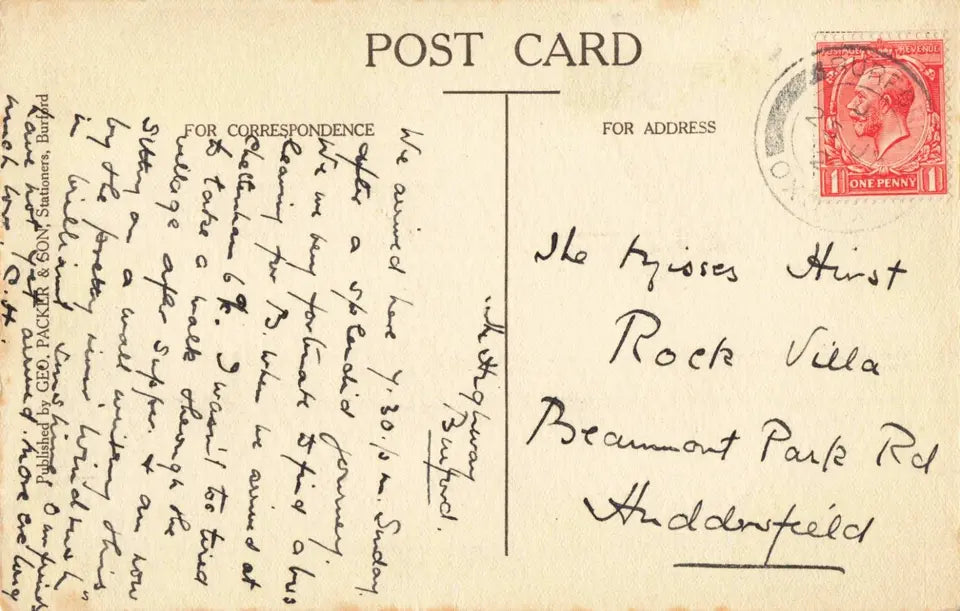 POST CARD
FOR CORRESPONDENCE
FOR ADDRESS
POSTAGE REVENUE
1 ONE PENNY 1
BURF
The Misses Hirst
Rock Villa
Beaumont Park Rd
Huddersfield
The Highway
Burford.
We arrived here 7.30.p.m. Sunday
after a splendid journey.
We were very fortunate to find a bus
leaving for B. when we arrived at
Cheltenham 6 I wasn't too tired
to take a walk through the
village after supper. & am now
sitting on a wall writing this
by the pretty river, "Windrush"
in brilliant sunshine. Our friends
have not yet arrived. More ere long
much love,
Published by GEO. PACKER & SON, Stationers, Burford